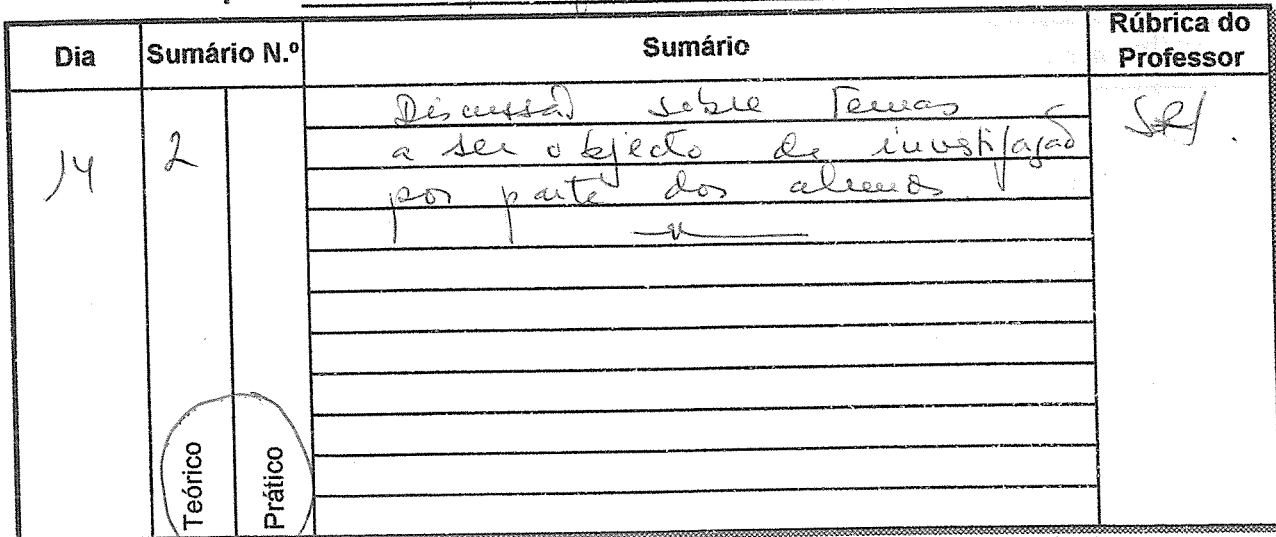 Dia Sumário N.º Sumário Rúbrica do Professor
14 2 Discussão sobre Temas
a ser objecto de investigação
por parte dos alunos
Teórico Prático